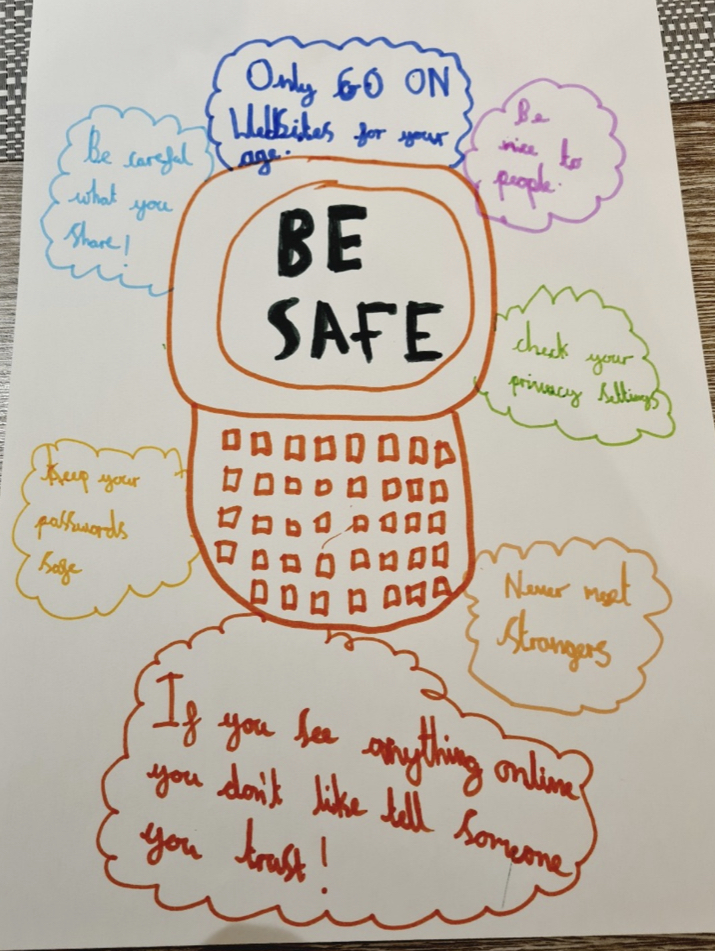 Only GO ON
Websites for your
age.
Be careful
what you
share!
Be
nice to
people.
BE
SAFE
check your
privacy settings
Keep your
passwords
safe
Never meet
strangers
If you see anything online
you don't like tell someone
you trust!